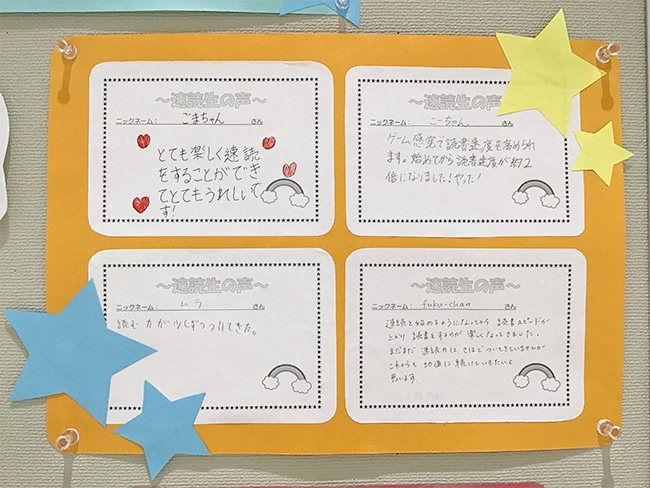 ～速読生の声～
ニックネーム： ごまちゃん さん
とても楽しく速読
をすることができ
てとてもうれしいで
す!
～速読生の声～
ニックネーム： こーちゃん さん
ゲーム感覚で読書速度を高められ
ます。始めてから読書速度が約2
倍になりました!やった!
～速読生の声～
ニックネーム： ムラ さん
読む力が少しずつついてきた。
～速読生の声～
ニックネーム： fuku-chan さん
速読を始めるようになってから 読書スピードが
上がり 読書をするのが 楽しくなってきました。
まだまだ 速読力は さほどついてきていませんが
これからも 地道に 続けていきたいと
思います。